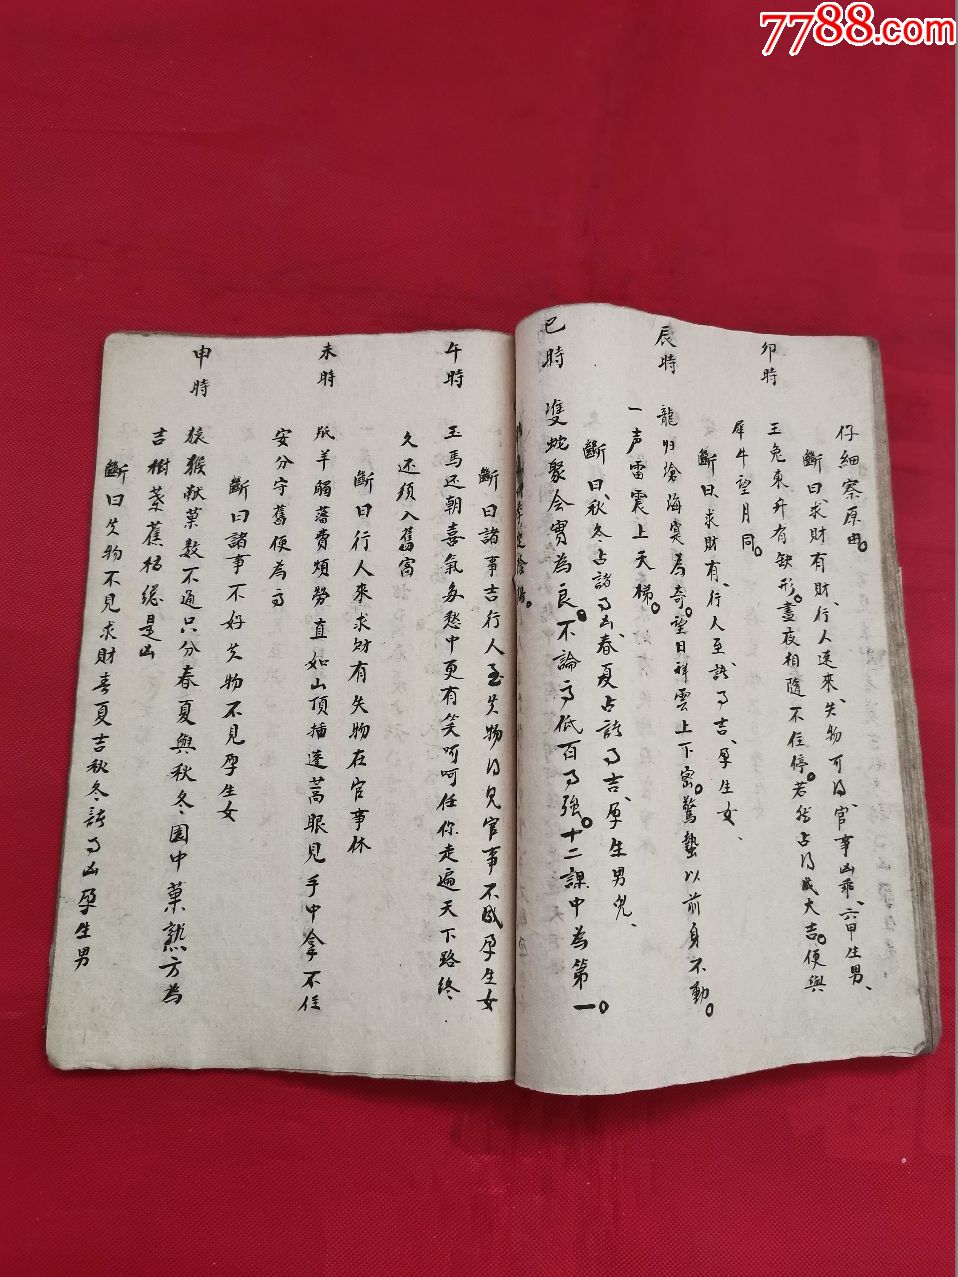 7788.com
仔細察原由。
斷曰、求財有財、行人速來、失物可得、官事凶乖、六甲生男、
卯時
玉兔東升有缺形。晝夜相隨不住停。若然占得成大吉。便與
犀牛望月同。
斷曰、求財有、行人至、諸事吉、孕生女、
辰時
龍归滄海實為奇。望日祥雲上下密。驚蟄以前身不動。
一声雷震上天梯。
斷曰、秋冬占諸事凶、春夏占諸事吉、孕生男兒、
巳時
雙蛇聚会實為良。不論高低百事強。十二課中為第一。
斷曰諸事吉行人至失物得見官事不成孕生女
午時
玉馬还朝喜氣多愁中更有笑呵呵任你走遍天下路終
久还須入舊窩
斷曰行人來求財有失物在官事休
未時
羝羊觸藩費煩勞直如山頂插蓬蒿眼見手中拿不住
安分守舊便為高
斷曰諸事不好失物不見孕生女
申時
猿猴献菓数不通只分春夏與秋冬園中菓熟方為
吉樹葉蕉枯總是凶
斷曰失物不見求財春夏吉秋冬諸事凶孕生男